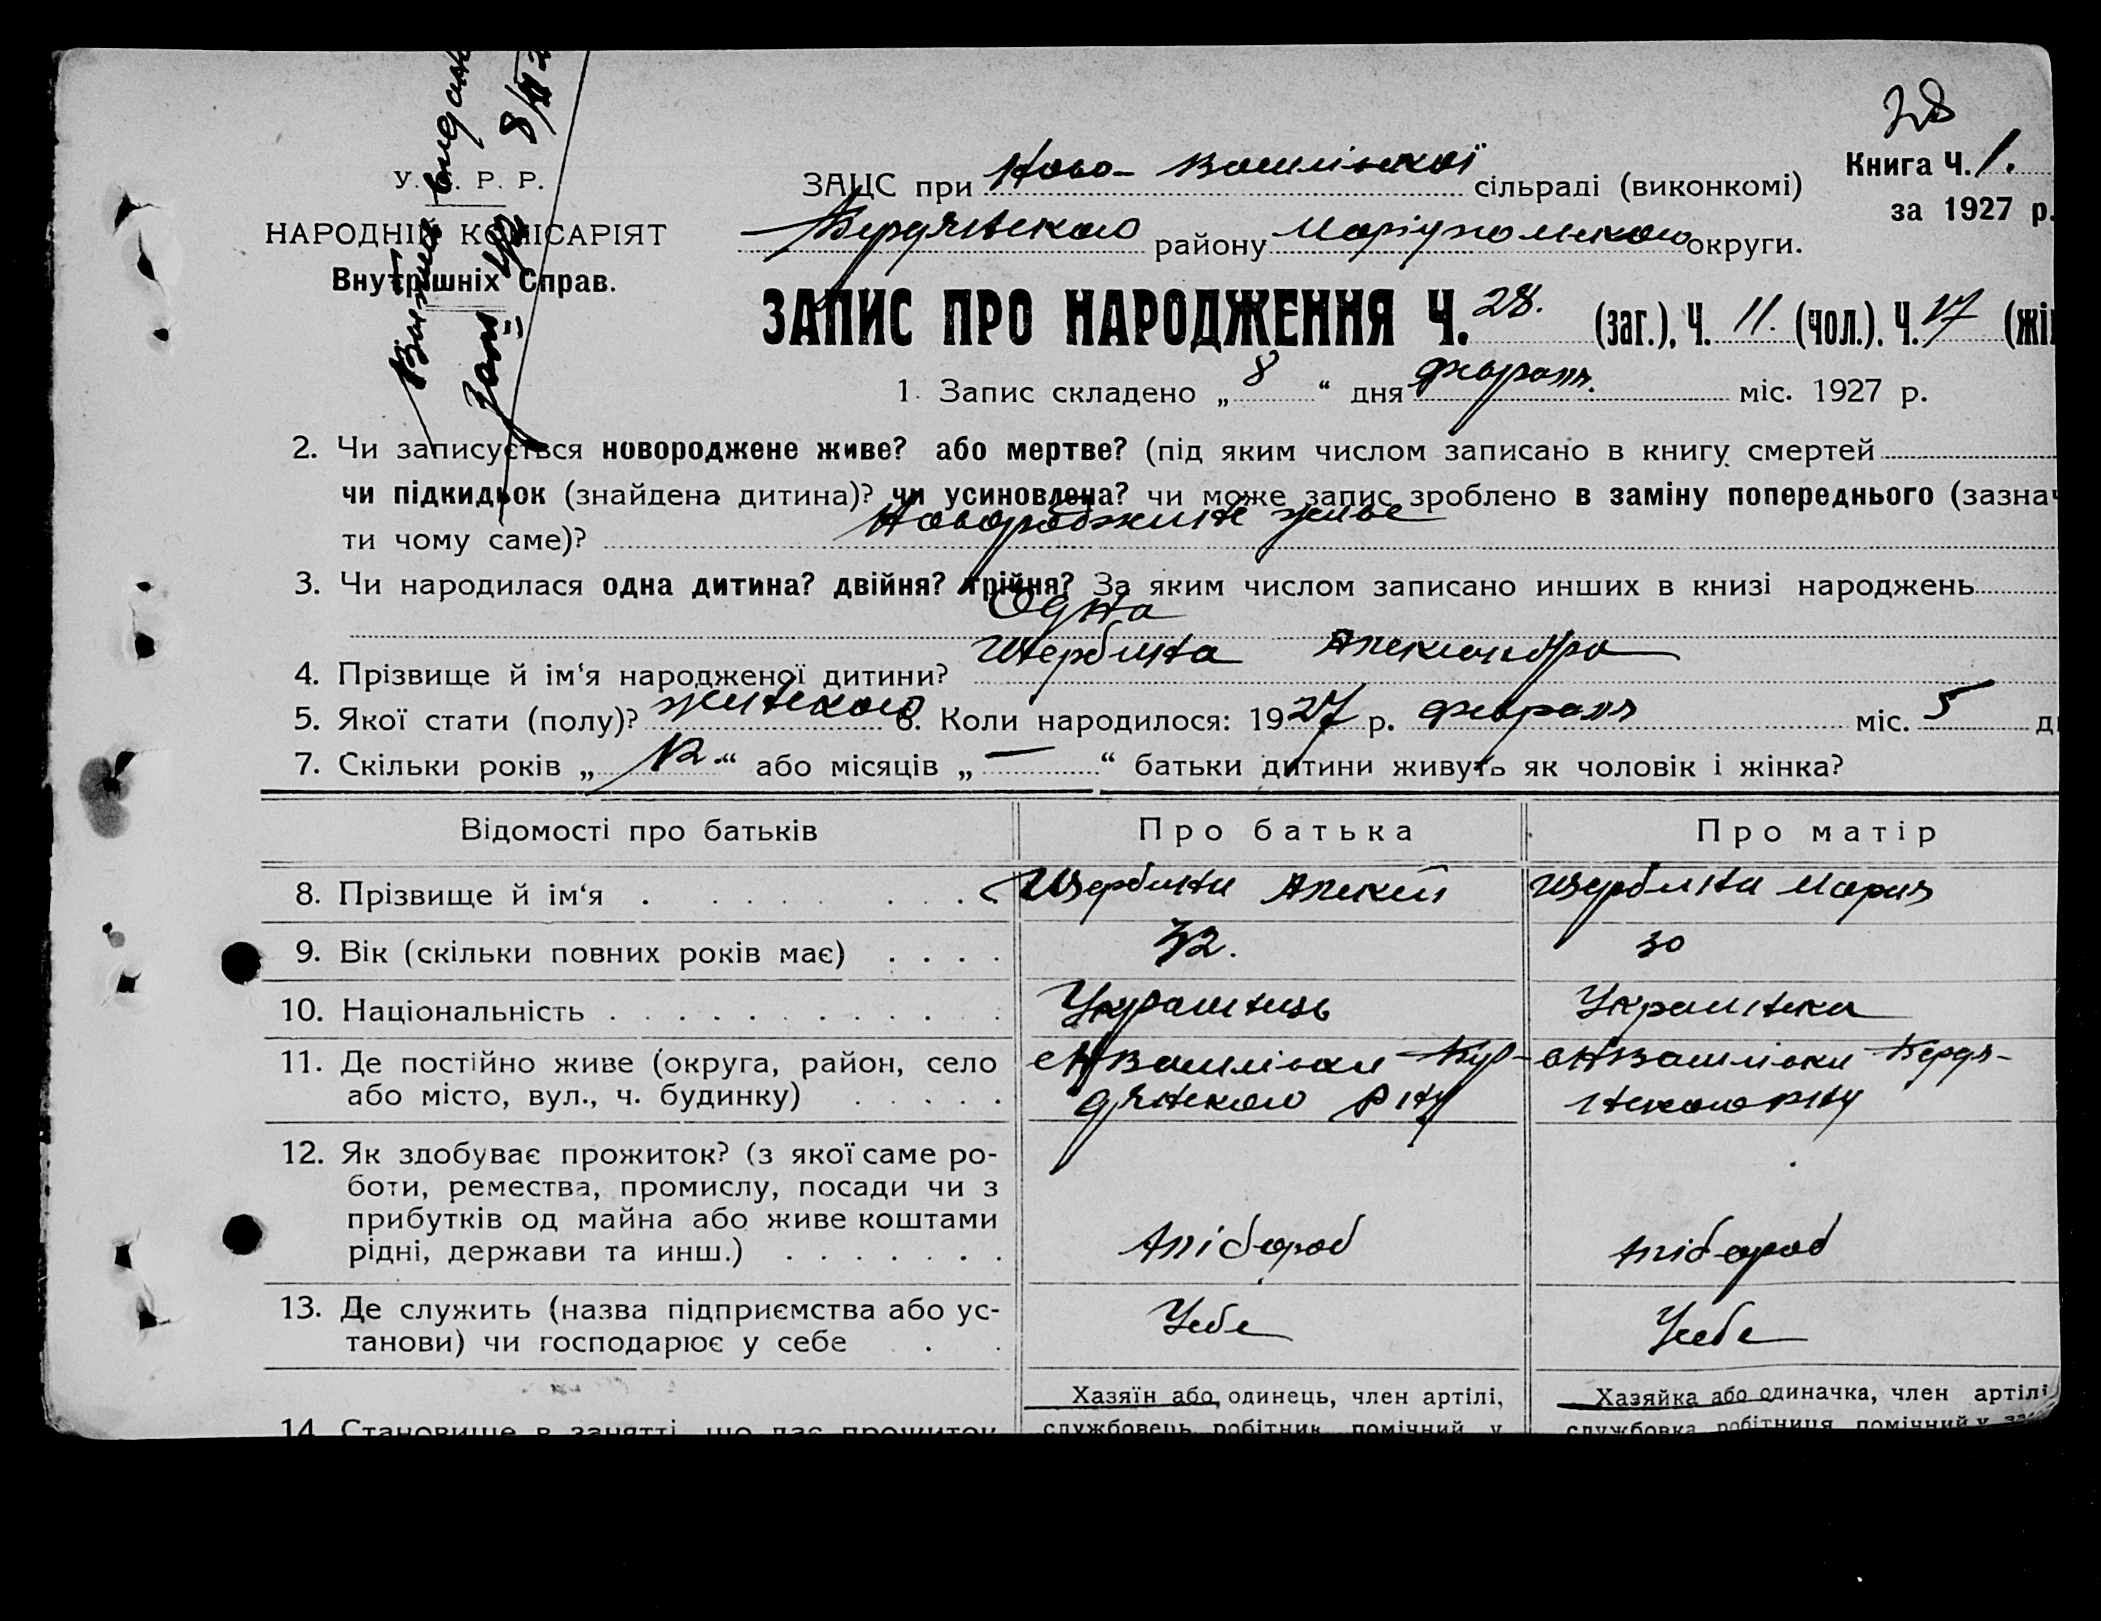 28
У. С. Р. Р.
НАРОДНІЙ КОМІСАРІЯТ
Внутрішніх Справ.
ЗАЦС при Ново-Вашлівської сільраді (виконкомі)
Книга Ч. 1.
за 1927 р.
Бердянського району Маріупольского округи.
ЗАПИС ПРО НАРОДЖЕННЯ Ч. 28. (заг.), Ч. 11. (чол.). Ч. 17 (жін
1. Запис складено „ 8 “ дня февраля. міс. 1927 р.
2. Чи записується новороджене живе? або мертве? (під яким числом записано в книгу смертей
чи підкидьок (знайдена дитина)? чи усиновлена? чи може запис зроблено в заміну попереднього (зазнач
ти чому саме)? Новорожденне живе
3. Чи народилася одна дитина? двійня? трійня? За яким числом записано инших в книзі народжень
Одна
4. Прізвище й ім‘я народженої дитини? Щербина Александра
5. Якої стати (полу)? женского 6. Коли народилося: 1927 р. февраля міс. 5 д
7. Скільки років „ 12 “ або місяців „ — “ батьки дитини живуть як чоловік і жінка?
Відомості про батьків Про батька Про матір
8. Прізвище й ім‘я Щербина Алексей Щербина Мария
9. Вік (скільки повних років має) 32. 30
10. Національність Украинець Украинка
11. Де постійно живе (округа, район, село с НВашлівки Бер- с НВашлівки Бердя-
або місто, вул., ч. будинку) дянского рну нского рну
12. Як здобуває прожиток? (з якої саме ро-
боти, ремества, промислу, посади чи з
прибутків од майна або живе коштами
рідні, держави та инш.) хлібороб хлібороб
13. Де служить (назва підприємства або ус-
танови) чи господарює у себе Усебе Усебе
Хазяїн або одинець, член артілі, Хазяйка або одиначка, член артілі
14. Становище в занятті, що дає прожиток службовець, робітник, помічний у службовка робітниця, помічний у